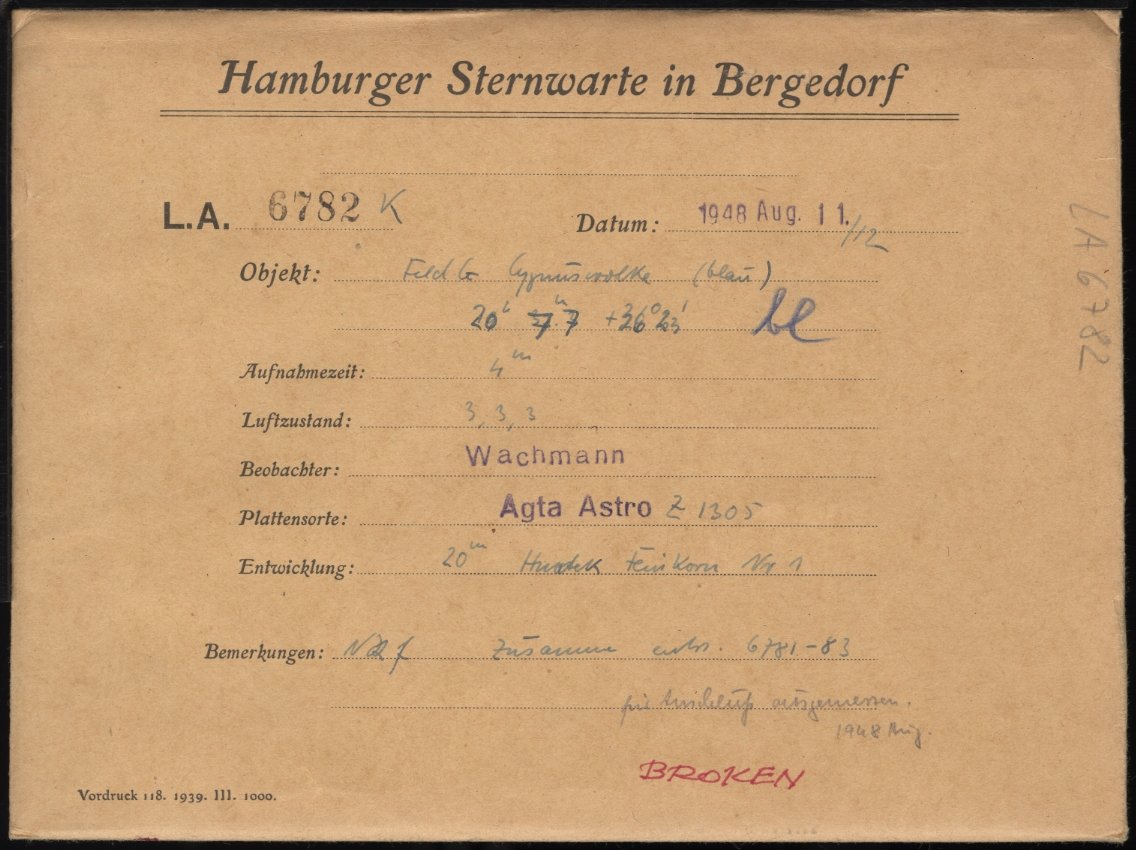 Hamburger Sternwarte in Bergedorf
L.A. 6782 K
Datum: 1948 Aug. 11./12
Objekt: Feld G Cygnuswolke (blau)
20h 7.7m +36°23' bl
Aufnahmezeit: 4m
Luftzustand: 3, 3, 3
Beobachter: Wachmann
Plattensorte: Agfa Astro Z 1305
Entwicklung: 20m Feinkorn Nr 1
Bemerkungen: Zusammen entw. 6781-83
für Anschluß ausgemessen.
1948 Aug.
BROKEN
Vordruck 118. 1939. III. 1000.
LA 6782